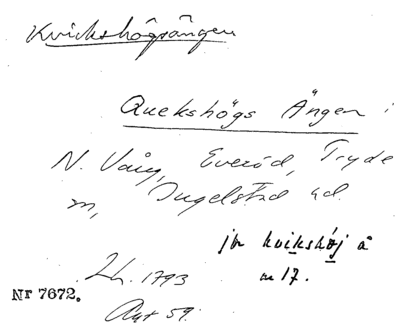 Kvickshögsängen
Quekshögs Ängen i
N. Vång, Everöd, Tryde
m, Ingelstad hd.
jfr kvikshöj å
m 17.
Lh. 1793
Nr 7672. Akt 59.